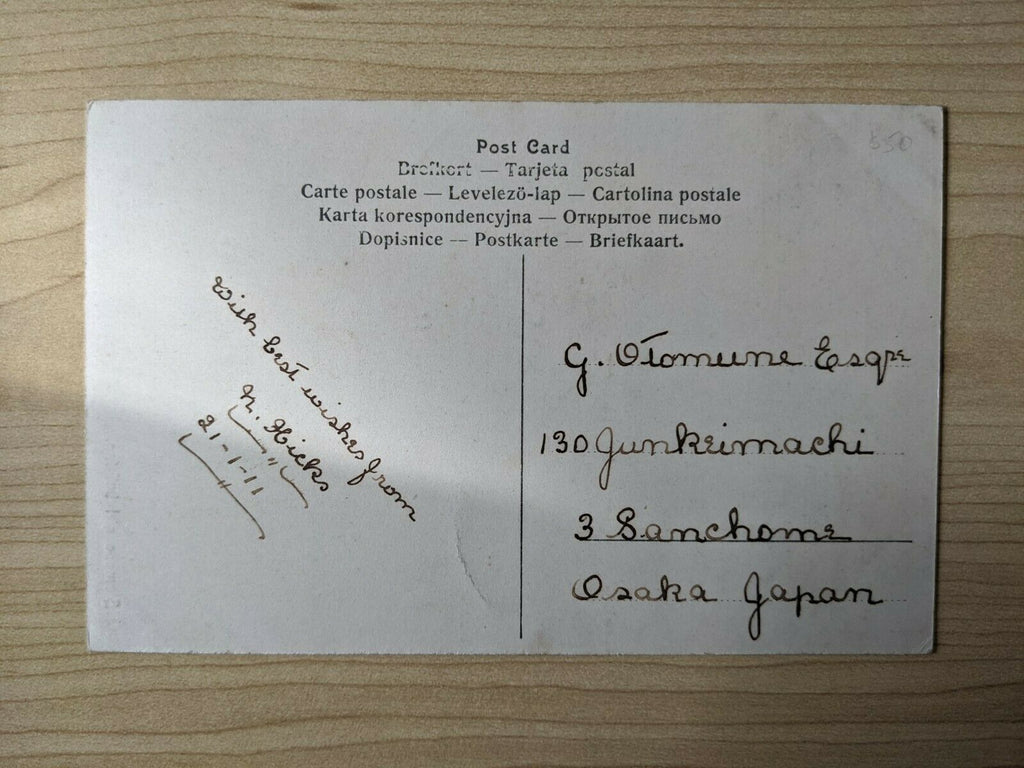 550
Post Card
Brefkort — Tarjeta postal
Carte postale — Levelező-lap — Cartolina postale
Karta korespondencyjna — Открытое письмо
Dopisnice — Postkarte — Briefkaart.
With best wishes from
N. Hicks
21-1-11
G. Otomune Esqre
130 Junkeimachi
3 Sanchome
Osaka Japan